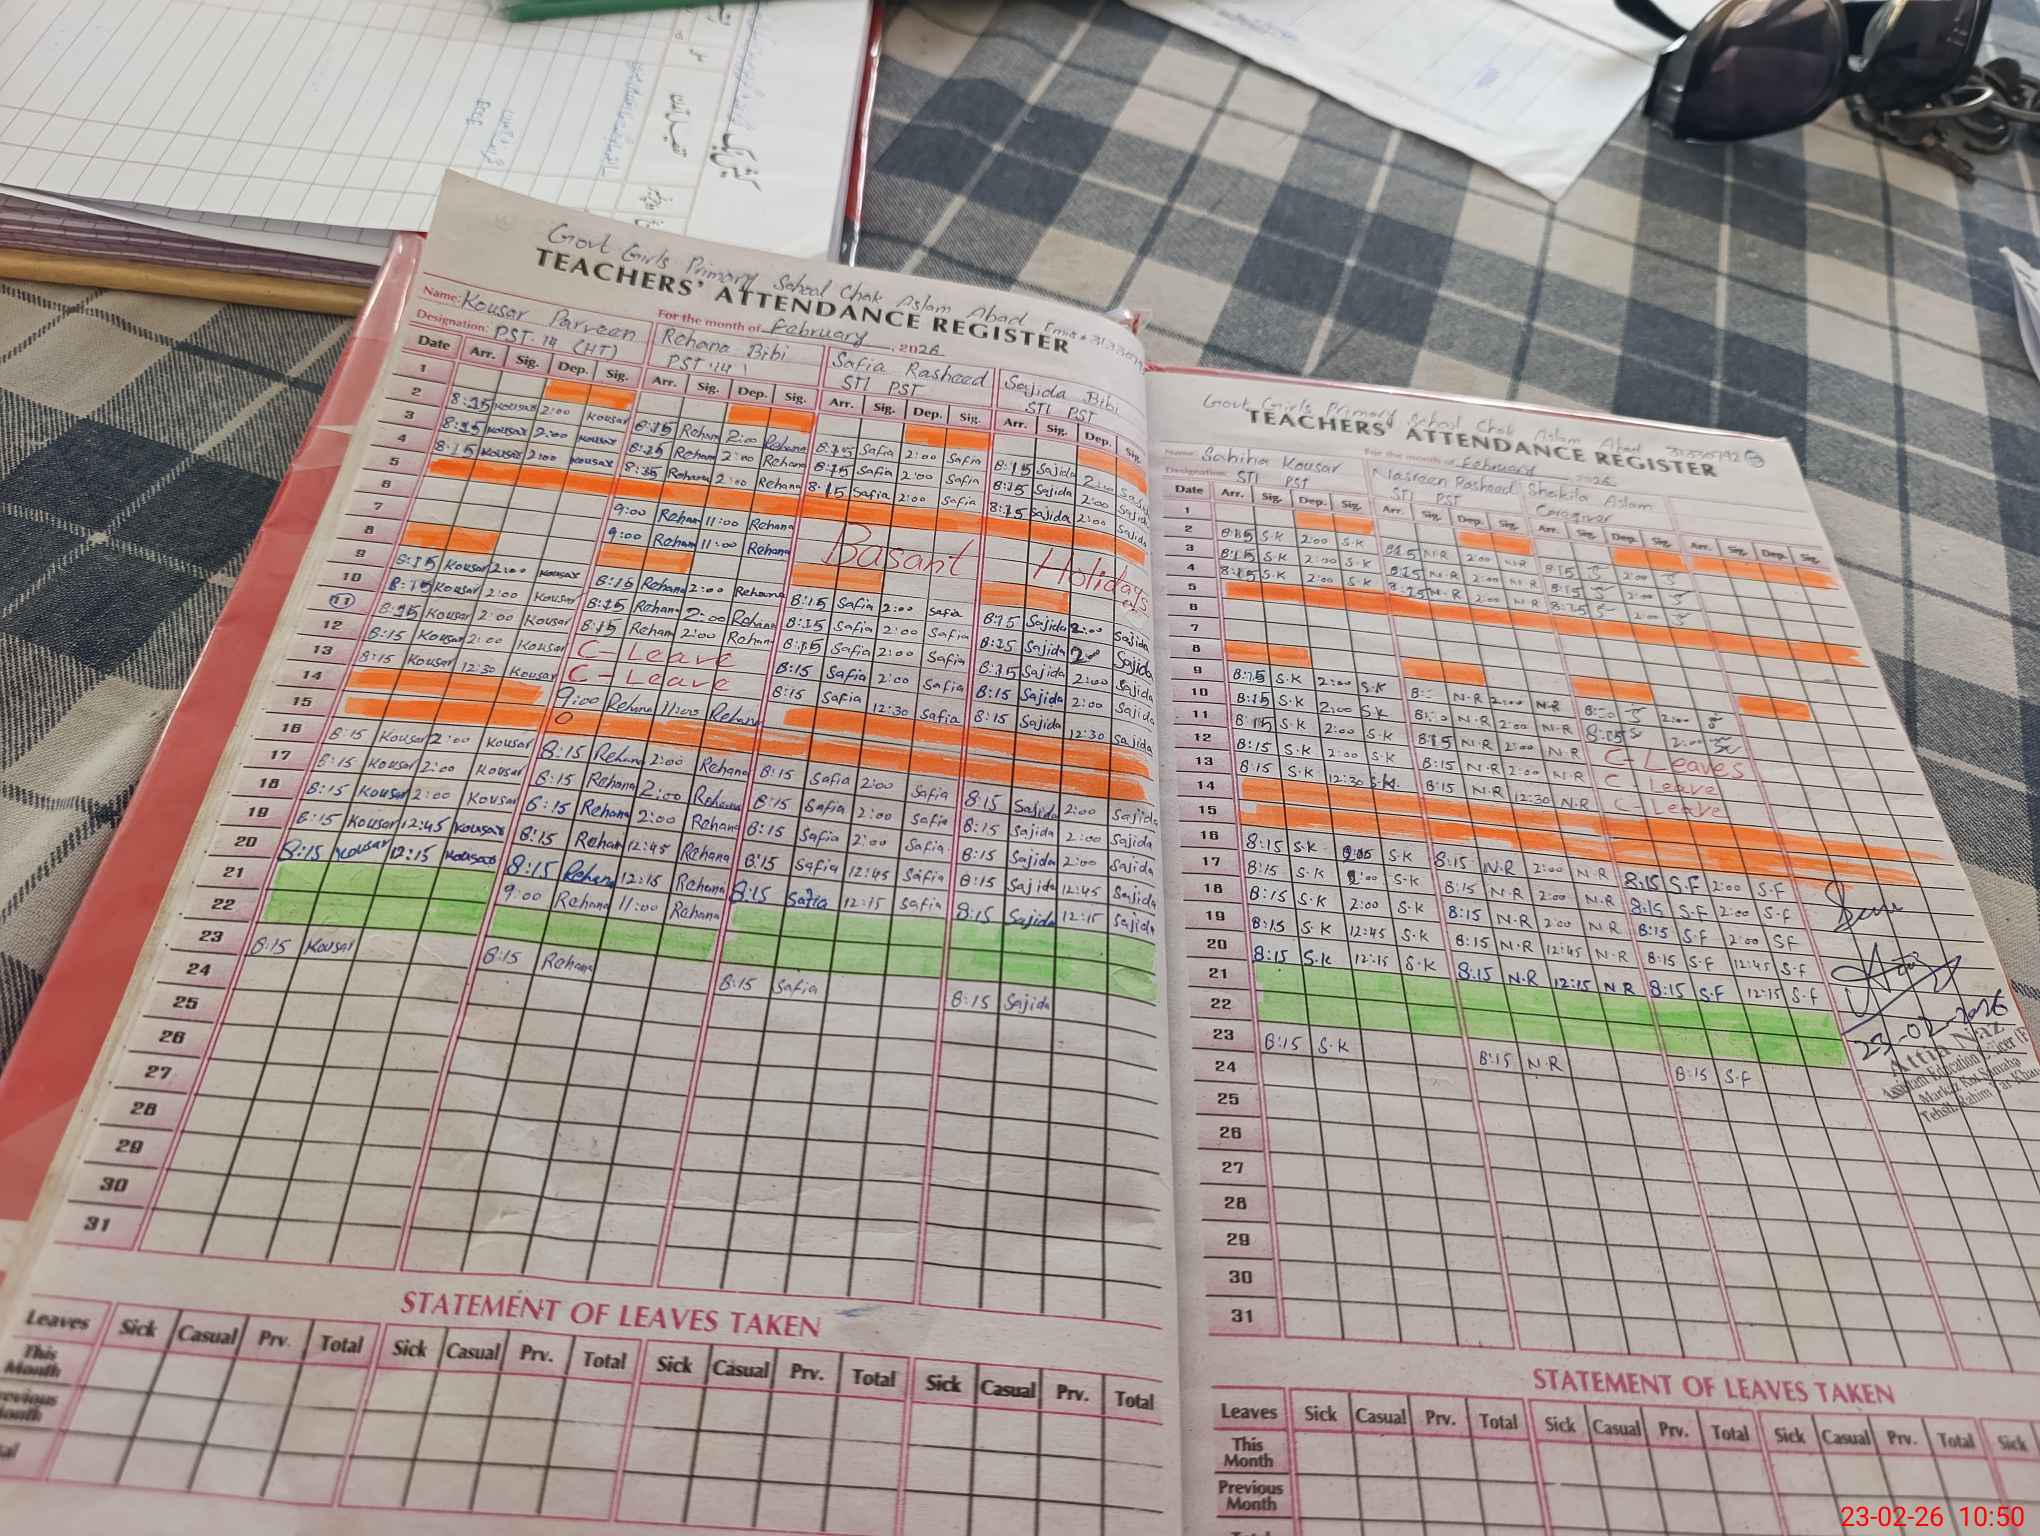 Govt Girls Primary School Chak Aslam Abad Emis
TEACHERS' ATTENDANCE REGISTER
Name: Kousar Parveen For the month of February, 2026
Designation: PST-14 (HT) Rehana Bibi PST-14 Safia Rasheed STI PST Sajida Bibi STI PST
Date Arr. Sig. Dep. Sig. Arr. Sig. Dep. Sig. Arr. Sig. Dep. Sig. Arr. Sig. Dep. Sig.
1
2 8:15 Kousar 2:00 Kousar 8:15 Rehana 2:00 Rehana 8:15 Safia 2:00 Safia 8:15 Sajida 2:00 Sajida
3 8:15 Kousar 2:00 Kousar 8:15 Rehana 2:00 Rehana 8:15 Safia 2:00 Safia 8:15 Sajida 2:00 Sajida
4 8:15 Kousar 2:00 Kousar 8:15 Rehana 2:00 Rehana 8:15 Safia 2:00 Safia 8:15 Sajida 2:00 Sajida
5
6 9:00 Rehana 11:00 Rehana Basant Holidays
7 9:00 Rehana 11:00 Rehana
8
9 8:15 Kousar 2:00 Kousar 8:15 Rehana 2:00 Rehana 8:15 Safia 2:00 Safia 8:15 Sajida 2:00 Sajida
10 8:15 Kousar 2:00 Kousar 8:15 Rehana 2:00 Rehana 8:15 Safia 2:00 Safia 8:15 Sajida Sajida
11 8:15 Kousar 2:00 Kousar 8:15 Rehana 2:00 Rehana 8:15 Safia 2:00 Safia 8:15 Sajida 2:00 Sajida
12 8:15 Kousar 2:00 Kousar C-Leave 8:15 Safia 2:00 Safia 8:15 Sajida 2:00 Sajida
13 8:15 Kousar 12:30 Kousar C-Leave 8:15 Safia 12:30 Safia 8:15 Sajida 12:30 Sajida
14 9:00 Rehana 11:00 Rehana
15
16 8:15 Kousar 2:00 Kousar 8:15 Rehana 2:00 Rehana 8:15 Safia 2:00 Safia 8:15 Sajida 2:00 Sajida
17 8:15 Kousar 2:00 Kousar 8:15 Rehana 2:00 Rehana 8:15 Safia 2:00 Safia 8:15 Sajida 2:00 Sajida
18 8:15 Kousar 2:00 Kousar 8:15 Rehana 2:00 Rehana 8:15 Safia 2:00 Safia 8:15 Sajida 2:00 Sajida
19 8:15 Kousar 12:45 Kousar 8:15 Rehana 12:45 Rehana 8:15 Safia 12:45 Safia 8:15 Sajida 12:45 Sajida
20 8:15 Kousar 12:15 Kousar 8:15 Rehana 12:15 Rehana 8:15 Safia 12:15 Safia 8:15 Sajida 12:15 Sajida
21 9:00 Rehana 11:00 Rehana
22
23 8:15 Kousar 8:15 Rehana 8:15 Safia 8:15 Sajida
24
25
26
27
28
29
30
31
STATEMENT OF LEAVES TAKEN
Leaves Sick Casual Prv. Total Sick Casual Prv. Total Sick Casual Prv. Total Sick Casual Prv. Total
This Month
Govt Girls Primary School Chak Aslam Abad
TEACHERS' ATTENDANCE REGISTER
Name: Sabiha Kousar For the month of February 2026
Designation: STI PST Nasreen Rasheed STI PST Shakila Aslam Caregiver
Date Arr. Sig. Dep. Sig. Arr. Sig. Dep. Sig. Arr. Sig. Dep. Sig. Arr. Sig. Dep. Sig.
1
2 8:15 S.K 2:00 S.K 8:15 N.R 2:00 N.R 8:15 2:00
3 8:15 S.K 2:00 S.K 8:15 N.R 2:00 N.R 8:15 2:00
4 8:15 S.K 2:00 S.K 8:15 N.R 2:00 N.R 8:15 2:00
5
6
7
8
9 8:15 S.K 2:00 S.K N.R 2:00 N.R 2:00
10 8:15 S.K 2:00 S.K N.R 2:00 N.R 8:15 2:00
11 8:15 S.K 2:00 S.K 8:15 N.R 2:00 N.R C-Leaves
12 8:15 S.K 2:00 S.K 8:15 N.R 2:00 N.R C-Leave
13 8:15 S.K 12:30 S.K 8:15 N.R 12:30 N.R C-Leave
14
15
16 8:15 S.K S.K 8:15 N.R 2:00 N.R 8:15 S.F 2:00 S.F
17 8:15 S.K 2:00 S.K 8:15 N.R 2:00 N.R 8:15 S.F 2:00 S.F
18 8:15 S.K 2:00 S.K 8:15 N.R 2:00 N.R 8:15 S.F 2:00 S.F
19 8:15 S.K 12:45 S.K 8:15 N.R 12:45 N.R 8:15 S.F 12:45 S.F
20 8:15 S.K 12:15 S.K 8:15 N.R 12:15 N.R 8:15 S.F 12:15 S.F
21
22
23 8:15 S.K 8:15 N.R 8:15 S.F
24
25
26
27
28
29
30
31
23-02-2026
Attia Naz
Assistant Education Officer
Markaz Kot Samaba
Tehsil Rahim Yar Khan
STATEMENT OF LEAVES TAKEN
Leaves Sick Casual Prv. Total Sick Casual Prv. Total Sick Casual Prv. Total Sick
This Month
Previous Month
23-02-26 10:50